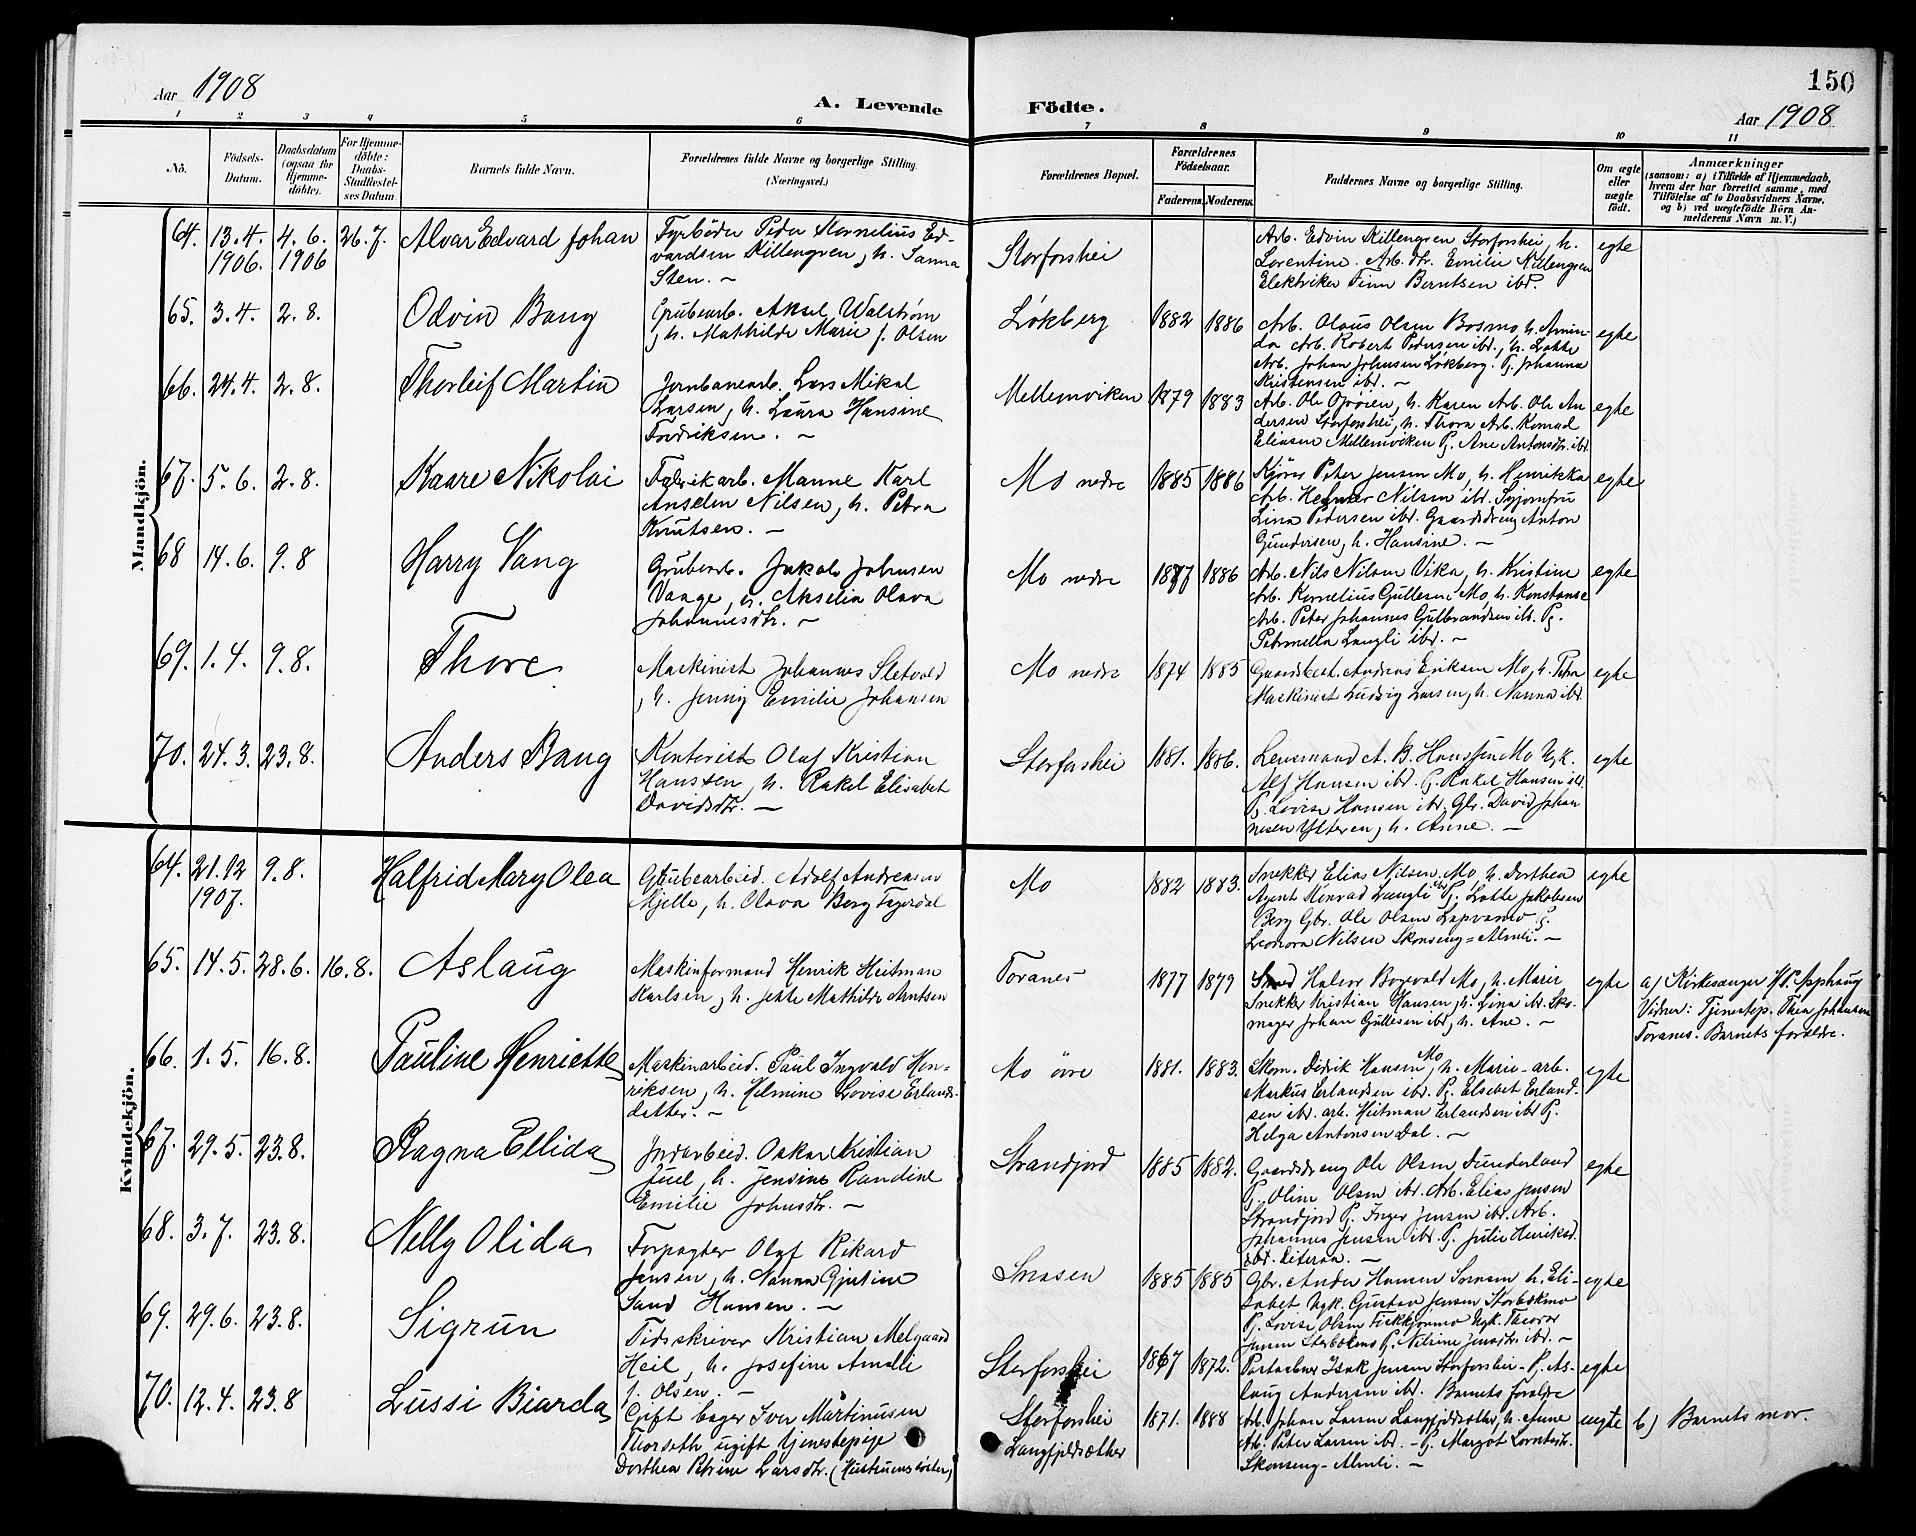 Aar 1908
A. Levende Födte.
150
Aar 1908
1 2 3 4 5 6 7 8 9 10 11
No.
Födsels-
Datum.
Daabsdatum
(ogsaa for
Hjemme-
döbte).
For Hjemme-
döbte:
Daabs-
Stadfæstel-
ses Datum
Barnets fulde Navn.
Forældrenes fulde Navne og borgerlige Stilling.
(Næringsvei.)
Forældrenes Bopæl.
Forældrenes
Födselsaar.
Faderens. Moderens.
Faddernes Navne og borgerlige Stilling.
Om ægte
eller
uægte
født.
Anmærkninger
(saasom: a) i Tilfælde af Hjemmedaab,
hvem der har forrettet samme, med
Tilföielse af to Daabsvidners Navne.
og b) ved uægtefödte Börn An-
melderens Navn m. V.)
Mandkjön.
64. 13.4. 4.6. 26.7. Alvar Edvard Johan
1906. 1906
Fyrbøder Peder Kornelius Ed-
vardsen Killengren, h. Sanna
Sten. –
Storforshei
Arb. Edvin Killengren Storforshei, h.
Lorentine. Arb. dtr. Emilie Killengren
Elektriker Finn Berntsen ibd.
egte
65. 3.4. 2.8. Odvin Bang
Grubearb. Aksel Walstrøm
, h. Mathilde Marie f. Olsen
Løkberg 1882 1886
Arb. Olaus Olsen Bosmo, h. Amin-
da Arb. Robert Pedersen ibd., h. Lotte
Arb. Johan Johnsen Løkberg. Pg. Johanna
Kristensen ibd. –
egte
66. 24.4. 2.8. Thorleif Martin
Jernbanearb. Lars Mikal
Larsen, h. Laura Hansine
Fredriksen. –
Mellemviken 1879 1883
Arb. Ole Oprøien, h. Karen Arb. Ole An-
dersen Storforshei, h. Thora Arb. Konrad
Eliasen Mellemviken Pg. Ane Antonsdtr. ibd.
egte
67. 5.6. 2.8. Kaare Nikolai
Fabrikarb. Manne Karl
Anselm Nilsen, h. Petra
Knutsen. –
Mo nedre 1885 1886
Kjører Peter Jensen Mo, h. Henrikka
Arb. Helmer Nilsen ibd. Syjomfru
Lina Pedersen ibd. Gaardsdreng Anton
Gundersen, h. Hansine. –
egte
68 14.6. 9.8 Harry Vang
Grubearb. Jakob Johnsen
Vaage, h. Akselia Olava
Johannesdtr. –
Mo nedre 1877 1886
Arb. Nils Nilsen Vika, h. Kristine
Arb. Kornelius Gullesen Mo, h. Konstanse
Arb. Peter Johannes Gulbrandsen ibd. Pg.
Petronella Langli ibd. –
egte
69. 1.4. 9.8. Thore
Maskinist Johannes Sletvold
, h. Jenny Emilie Johansen
Mo nedre 1874 1885
Gaardbest. Andreas Eriksen Mo, h. Petra
Maskinist Ludvig Larsen, h. Nanna ibd.
egte
70. 24.3. 23.8. Anders Bang
Kontorist Olaf Kristian
Hanssen, h. Rakel Elisabet
Davidsdtr. –
Storforshei 1881. 1886.
Lensmand A. B. Hanssen Mo Ugk.
Alf Hansen ibd. Pg. Rakel Hansen ibd.
Pg. Lovise Hansen ibd. Gbr. David Johan
nesen Ytteren, h. Anne. –
egte
Kvindekjön.
64. 21.12 9.8. Halfrid Mary Olea
1907.
Grubearbeid. Adolf Andreassen
Mjelle, h. Olava Berg Fagerdal
Mo 1882 1883.
Snekker Elias Nilsen Mo, h. Dorthea
Agent Konrad Langli ibd. Pg. Lotte Jakobsen
Berg Gbr. Ole Olsen Lapvamo Pg.
Leonora Nilsen Skonseng=Almli. –
egte
65. 14.5. 28.6. 16.8. Aslaug
Maskinformand Henrik Heitman
Karlsen, h. Jette Mathilde Arntsen
Toranes 1877 1879
Smed Halvor Borvald Mo, h. Marie
Snekker Kristian Hansen, h. Lina ibd. Sko-
mager Johan Gullesen ibd, h. Ane. –
egte
a) Kirkesanger H. P. Asphaug
Vidner: Tjenestep. Thea Johansen
Toranes. Barnets forældre.
66. 1.5. 16.8. Pauline Henriette
Maskinarbeid. Paul Ingvald Hen-
riksen, h. Helmine Lovise Erlands-
datter. –
Mo övre 1881. 1883.
Skom. Didrik Hansen Mo, h. Marie – arb.
Markus Erlandsen ibd. Pg. Elsebet Erland-
sen ibd. arb. Heitman Erlandsen ibd Pg.
Helga Antonsen Dal. –
egte
67. 29.5. 23.8. Ragna Ellida
Jordarbeid. Oskar Kristian
Juel, h. Jensine Randine
Emilie Johnsdtr. –
Strandjord 1885 1882.
Gaardsdreng Ole Olsen Dunderland
Pg. Oline Olsen ibd. Arb. Elias Jensen
Strandjord Pg. Inger Jensen ibd. Arb.
Johannes Jensen ibd. Pg. Julie Henriksd.
egte
68. 3.7. 23.8. Nelly Olida
Forpagter Olaf Rikard
Jensen, h. Nanna Gjertine
Sand Hansen. –
Snasen 1885 1885
Gbr. Ander Hansen Snasen h. Eli-
sabet Ugk. Gustav Jensen Storbækmo
Pg. Lovise Olsen Fiskkjønmo Ugk. Theodor
Jensen Storbækmo Pg. Nilsine Jensdtr. ibd. –
egte
69. 29.6. 23.8. Sigrun
Tidsskriver Kristian Melgaard
Heil, h. Josefine Amalie
f. Olsen. –
Storforshei 1867 1872.
Portaabner Isak Jensen Storforshei – Pg. As-
laug Andersen ibd. Barnets forældre
egte
70. 12.4. 23.8 Lussi Biarda
Gift bager Iver Martinusen
Thorseth ugift tjenestepige
Dorthea Petrine Larsdtr. (Hustruens søster)
Storforshei
Langfjeldsæther
1871. 1888
Arb. Johan Larsen Langfjeldsæther, h. Anne
Arb. Peter Larsen ibd. – Pg. Margot Lorntsdtr.
Skonseng – Almli. –
uegte
b) Barnets mor.